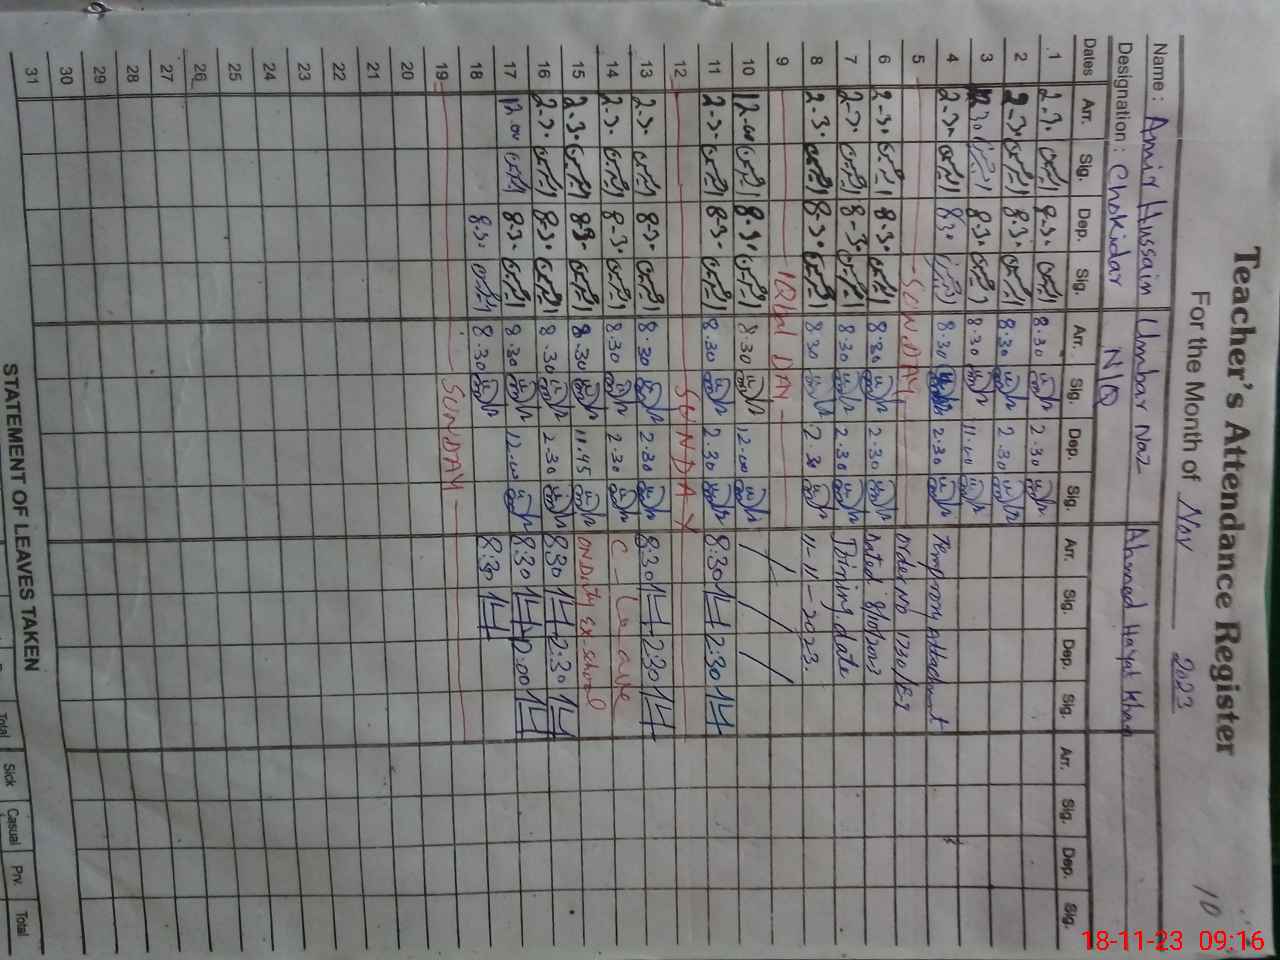 Teacher's Attendance Register
For the Month of Nov 2023 10
Name : Amir Hussain Umbar Naz Ahmed Hayat Khan
Designation : Chokidar N/Q
Dates Arr. Sig. Dep. Sig. Arr. Sig. Dep. Sig. Arr. Sig. Dep. Sig. Arr. Sig. Dep. Sig.
1 2.30 8.30 8.30 2.30
2 2.30 8.30 8.30 2.30
3 8.30 8.30 11.00
4 2.30 8.30 8.30 2.30 Temprory attachment
5 SUNDAY order NO 1730/E-9
6 2.30 8.30 8.30 2.30 dated 8/10/2023
7 2.30 8.30 8.30 2.30 Joining date
8 2.30 8.30 8.30 2.30 11-11-2023.
9 IQbal DAY
10 12.00 8.30 8.30 12.00
11 2.30 8.30 8.30 2.30 8:30 2:30
12 SUNDAY
13 2.30 8.30 8.30 2.30 8:30 2:30
14 2.30 8.30 8.30 2.30 C-Leave
15 2.30 8.30 8.30 11.45 ON Duty Ex-School
16 2.30 8.30 8.30 2.30 8:30 2:30
17 12.00 8.30 8.30 12.00 8:30 12:00
18 8.30 8.30 8:30
19 SUNDAY
20
21
22
23
24
25
26
27
28
29
30
31
STATEMENT OF LEAVES TAKEN
Total Sick Casual Prv. Total
18-11-23 09:16